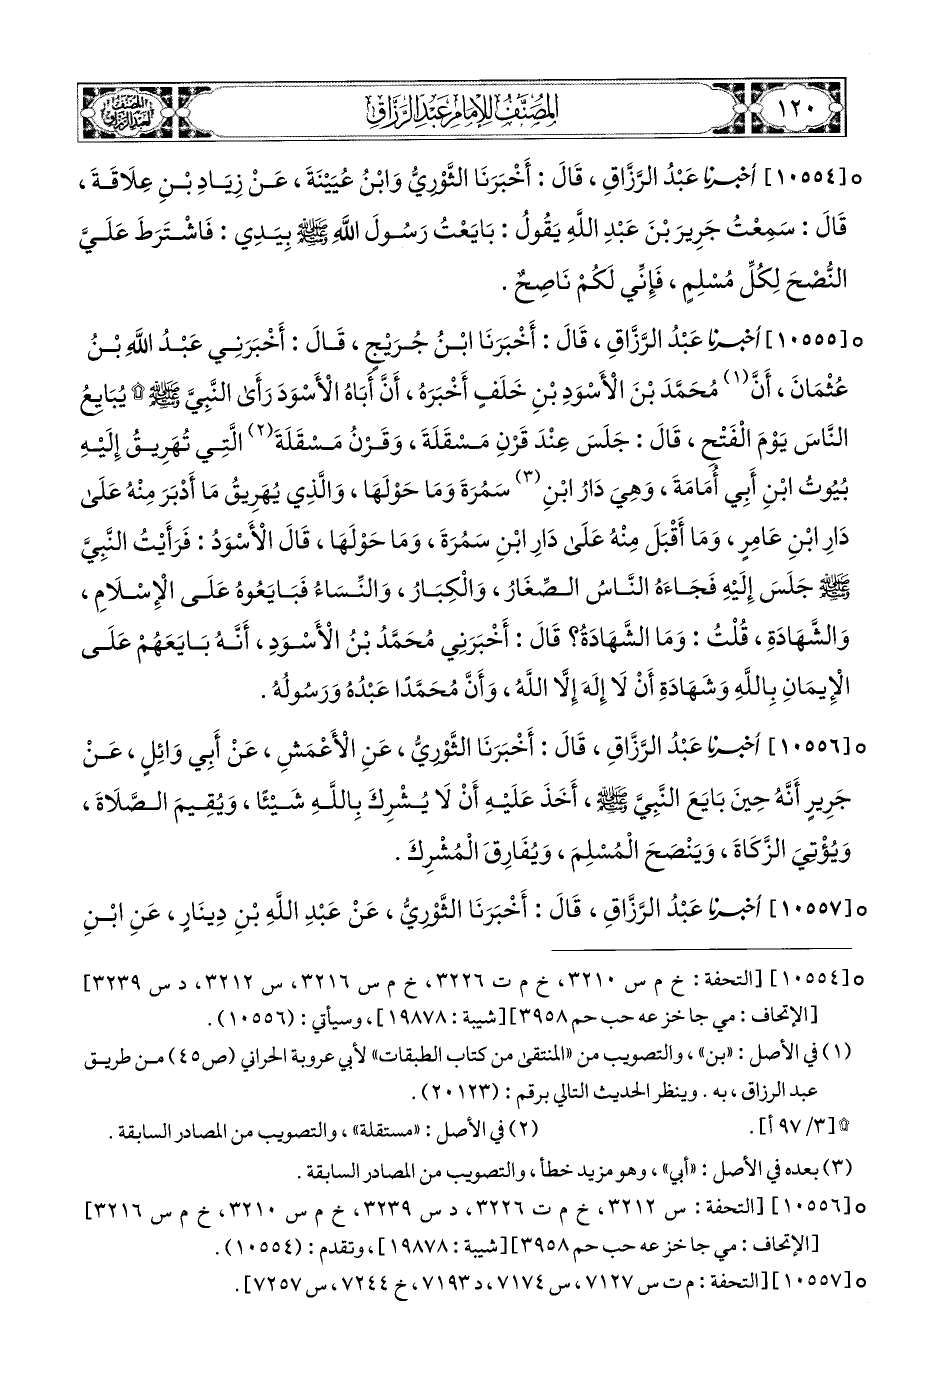 ١٢٠
المصنف للإمام عبد الرزاق
المصنف لعبد الرزاق
٥ [١٠٥٥٤] أخبرنا عَبْدُ الرَّزَّاقِ ، قَالَ : أَخْبَرَنَا الثَّوْرِيُّ وَابْنُ عُيَيْنَةَ ، عَنْ زِيَادِ بْنِ عِلَاقَةَ ،
قَالَ : سَمِعْتُ جَرِيرَ بْنَ عَبْدِ اللَّهِ يَقُولُ : بَايَعْتُ رَسُولَ اللَّهِ ﷺ بِيَدِي : فَاشْتَرَطَ عَلَيَّ
النُّصْحَ لِكُلِّ مُسْلِمٍ ، فَإِنِّي لَكُمْ نَاصِحٌ .
٥ [١٠٥٥٥] أخبرنا عَبْدُ الرَّزَّاقِ ، قَالَ : أَخْبَرَنَا ابْنُ جُرَيْجٍ ، قَالَ : أَخْبَرَنِي عَبْدُ اللَّهِ بْنُ
عُثْمَانَ ، أَنَّ (١) مُحَمَّدَ بْنَ الْأَسْوَدِ بْنِ خَلَفٍ أَخْبَرَهُ ، أَنَّ أَبَاهُ الْأَسْوَدَ رَأَى النَّبِيَّ ﷺ ۩ يُبَايِعُ
النَّاسَ يَوْمَ الْفَتْحِ ، قَالَ : جَلَسَ عِنْدَ قَرْنِ مَسْقَلَةَ ، وَقَرْنُ مَسْقَلَةَ (٢) الَّتِي تُهَرِيقُ إِلَيْهِ
بُيُوتُ ابْنِ أَبِي أُمَامَةَ ، وَهِيَ دَارُ ابْنِ (٣) سَمُرَةَ وَمَا حَوْلَهَا ، وَالَّذِي يُهَرِيقُ مَا أَدْبَرَ مِنْهُ عَلَى
دَارِ ابْنِ عَامِرٍ ، وَمَا أَقْبَلَ مِنْهُ عَلَى دَارِ ابْنِ سَمُرَةَ ، وَمَا حَوْلَهَا ، قَالَ الْأَسْوَدُ : فَرَأَيْتُ النَّبِيَّ
ﷺ جَلَسَ إِلَيْهِ فَجَاءَهُ النَّاسُ الصِّغَارُ ، وَالْكِبَارُ ، وَالنِّسَاءُ فَبَايَعُوهُ عَلَى الْإِسْلَامِ ،
وَالشَّهَادَةِ ، قُلْتُ : وَمَا الشَّهَادَةُ؟ قَالَ : أَخْبَرَنِي مُحَمَّدُ بْنُ الْأَسْوَدِ ، أَنَّهُ بَايَعَهُمْ عَلَى
الْإِيمَانِ بِاللَّهِ وَشَهَادَةِ أَنْ لَا إِلَهَ إِلَّا اللَّهُ ، وَأَنَّ مُحَمَّدًا عَبْدُهُ وَرَسُولُهُ .
٥ [١٠٥٥٦] أخبرنا عَبْدُ الرَّزَّاقِ ، قَالَ : أَخْبَرَنَا الثَّوْرِيُّ ، عَنِ الْأَعْمَشِ ، عَنْ أَبِي وَائِلٍ ، عَنْ
جَرِيرٍ أَنَّهُ حِينَ بَايَعَ النَّبِيَّ ﷺ ، أَخَذَ عَلَيْهِ أَنْ لَا يُشْرِكَ بِاللَّهِ شَيْئًا ، وَيُقِيمَ الصَّلَاةَ ،
وَيُؤْتِيَ الزَّكَاةَ ، وَيَنْصَحَ الْمُسْلِمَ ، وَيُفَارِقَ الْمُشْرِكَ .
٥ [١٠٥٥٧] أخبرنا عَبْدُ الرَّزَّاقِ ، قَالَ : أَخْبَرَنَا الثَّوْرِيُّ ، عَنْ عَبْدِ اللَّهِ بْنِ دِينَارٍ ، عَنِ ابْنِ
٥ [١٠٥٥٤] [التحفة : خ م س ٣٢١٠، خ م ت ٣٢٢٦، خ م س ٣٢١٦، س ٣٢١٢، د س ٣٢٣٩]
[الإتحاف : مي جا خز عه حب حم ٣٩٥٨][شيبة : ١٩٨٧٨]، وسيأتي : (١٠٥٥٦).
(١) في الأصل : «بن» ، والتصويب من «المنتقى من كتاب الطبقات» لأبي عروبة الحراني (ص٤٥) من طريق
عبد الرزاق ، به . وينظر الحديث التالي برقم : (٢٠١٢٣).
۩ [٣/ ٩٧ أ]. (٢) في الأصل : «مستقلة» ، والتصويب من المصادر السابقة .
(٣) بعده في الأصل : «أبي» ، وهو مزيد خطأ ، والتصويب من المصادر السابقة .
٥ [١٠٥٥٦] [التحفة : س ٣٢١٢، خ م ت ٣٢٢٦، د س ٣٢٣٩، خ م س ٣٢١٠، خ م س ٣٢١٦]
[الإتحاف : مي جا خز عه حب حم ٣٩٥٨][شيبة : ١٩٨٧٨]، وتقدم : (١٠٥٥٤).
٥ [١٠٥٥٧][التحفة : م ت س ٧١٢٧، س ٧١٧٤، د ٧١٩٣، خ ٧٢٤٤، س ٧٢٥٧].